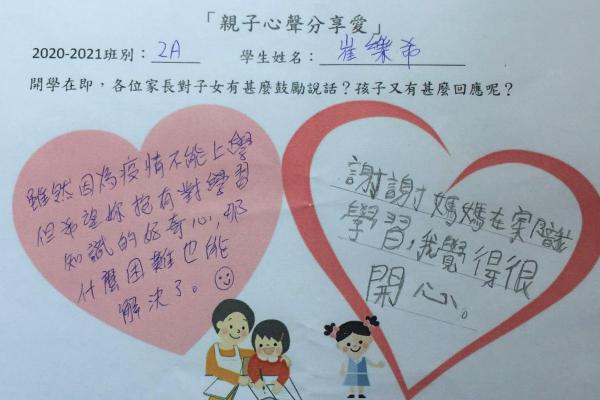 「親子心聲分享愛」
2020-2021班別：2A 學生姓名：崔樂希
開學在即，各位家長對子女有甚麼鼓勵說話？孩子又有甚麼回應呢？
雖然因為疫情不能上學
但希望妳抱有對學習
知識的好奇心，那
什麼困難也能
解決了。
謝謝媽媽在家陪我
學習，我覺得很
開心。